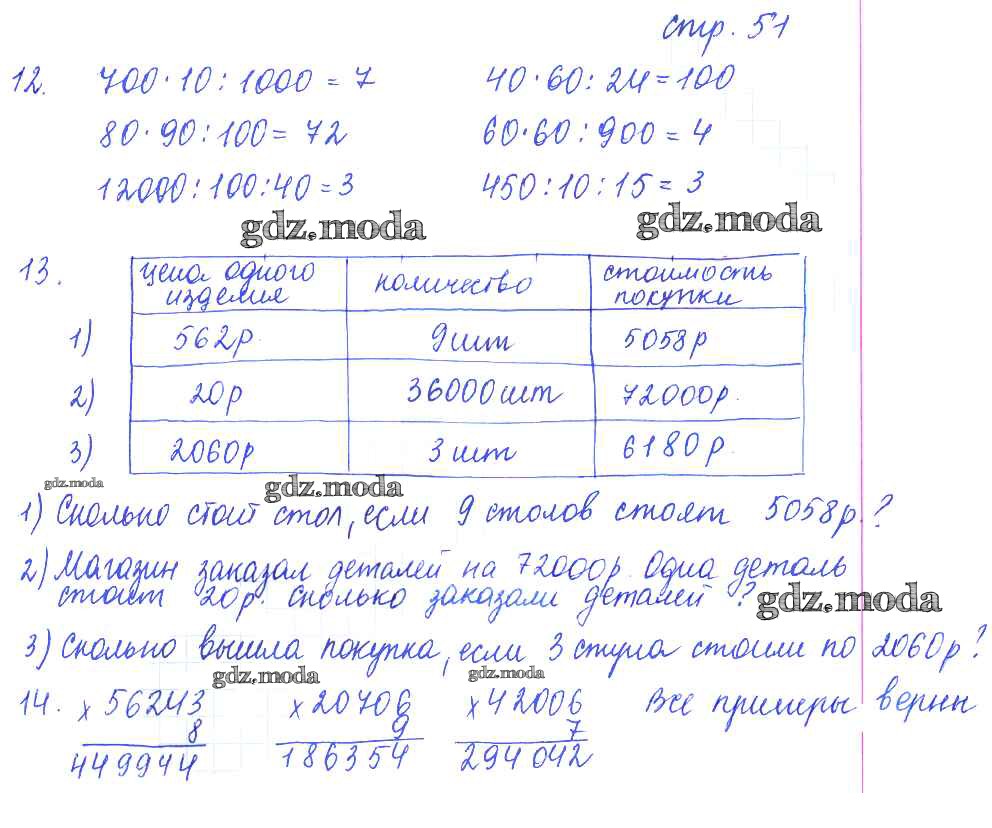 стр. 51
12. 700·10:1000=7 40·60:24=100
80·90:100=72 60·60:900=4
12000:100:40=3 450:10:15=3
gdz.moda gdz.moda
13. цена одного изделия количество стоимость покупки
1) 562р. 9шт 5058р
2) 20р 36000шт 72000р.
3) 2060р 3шт 6180р.
gdz.moda gdz.moda
1) Сколько стоит стол, если 9 столов стоят 5058р.?
2) Магазин заказал деталей на 72000р. Одна деталь
стоит 20р. Сколько заказали деталей?
gdz.moda
3) Сколько вышла покупка, если 3 стула стоили по 2060р?
gdz.moda gdz.moda
14. x 56243 x 20706 x 42006 Все примеры верны
8 9 7
449944 186354 294042